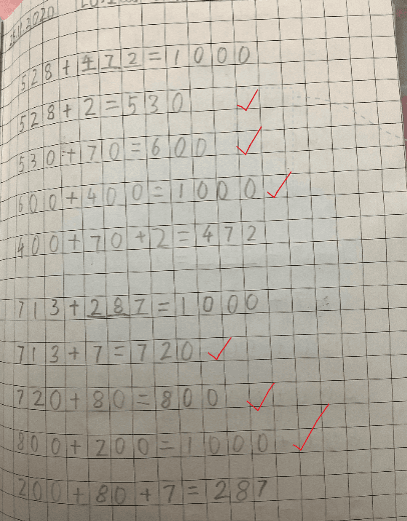 528+472=1000
528+2=530
530+70=600
600+400=1000
400+70+2=472
713+287=1000
713+7=720
720+80=800
800+200=1000
200+80+7=287